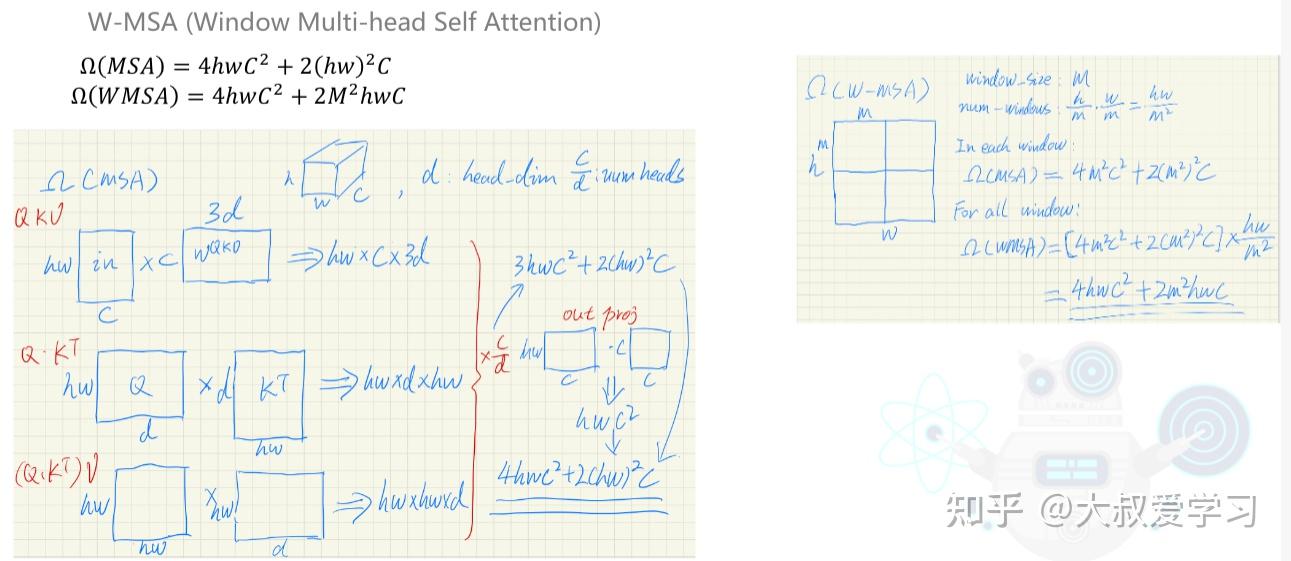 W-MSA (Window Multi-head Self Attention)
Ω(MSA) = 4hwC² + 2(hw)²C
Ω(WMSA) = 4hwC² + 2M²hwC
Ω(MSA)
h
w
C
, d : head-dim C/d : num heads
QKV
3d
hw in × C W^QKV ⇒ hw × C × 3d
C
Q·KT
hw Q × d KT ⇒ hw×d×hw
d
hw
(Q·KT)V
hw × hw ⇒ hw×hw×d
hw
d
× C/d
3hwC²+2(hw)²C
out proj
hw · C
C
C
⇓
hwC²
4hwC²+2(hw)²C
Ω(W-MSA)
M
M
h
w
window_size : M
num-windows : h/m · w/m = hw/m²
In each window:
Ω(MSA) = 4M²C² + 2(M²)²C
For all window:
Ω(WMSA)=[4M²C²+2(M²)²C]×hw/m²
= 4hwC² + 2m²hwC
知乎 @大叔爱学习